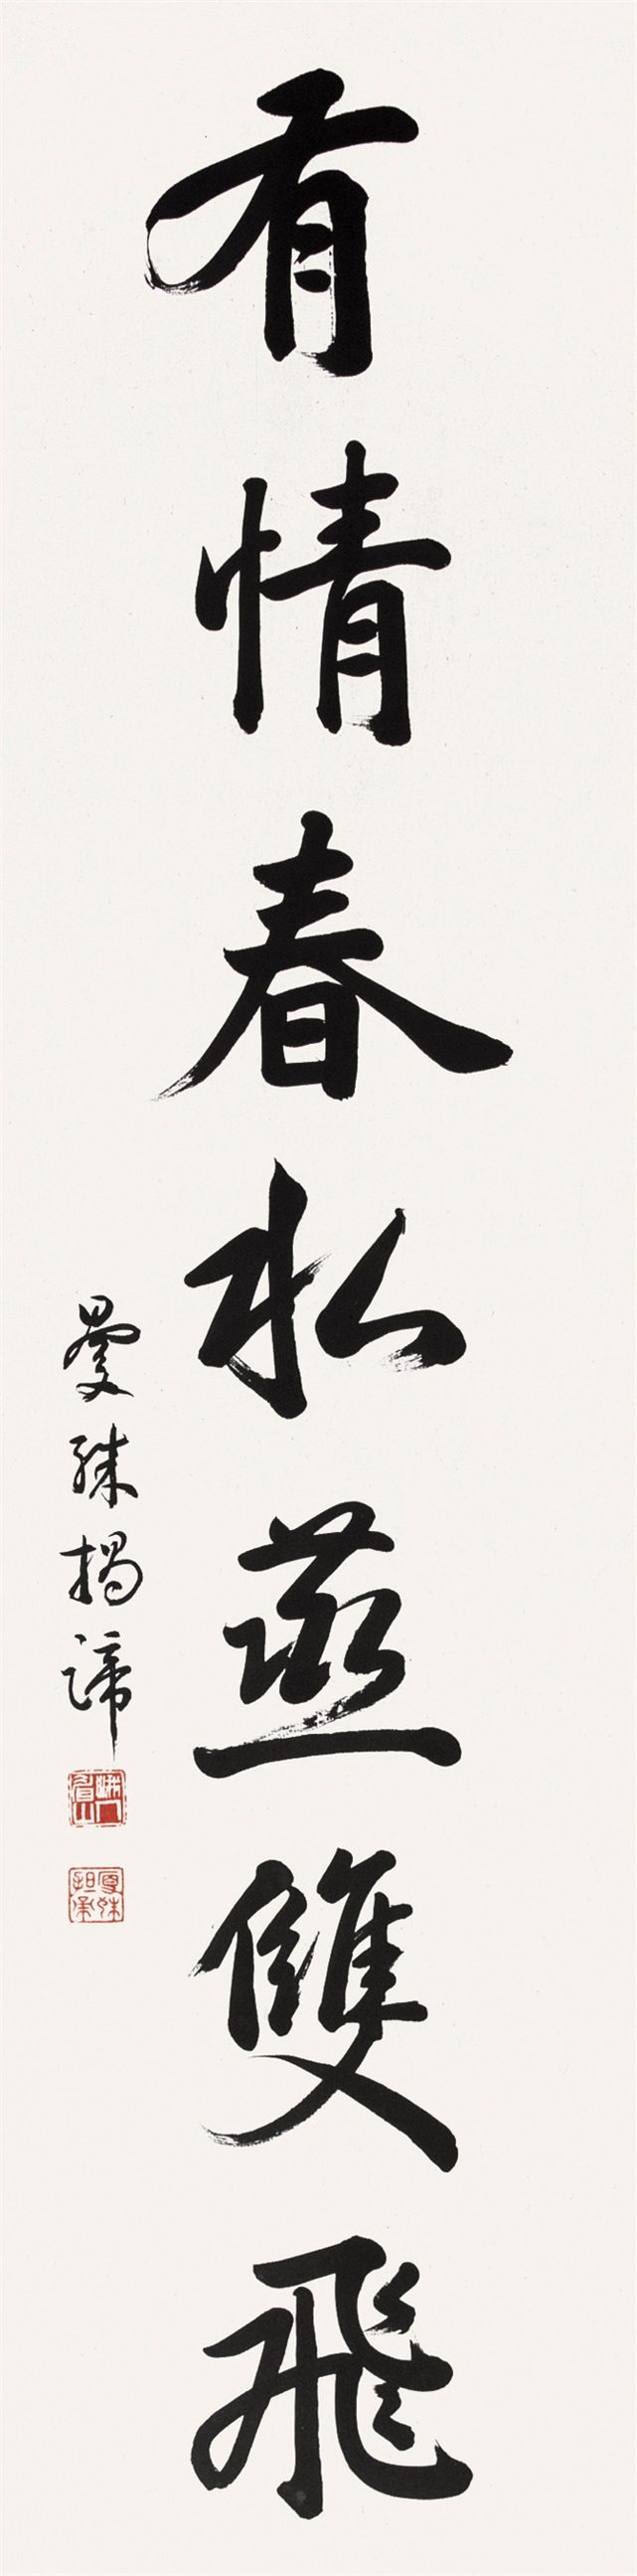 有情春水燕雙飛
曼殊揭諦